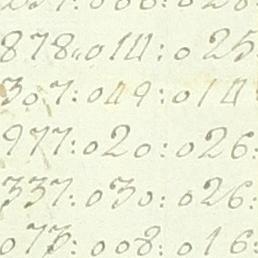 878:014:025
307:049:014
977:020:026:
337:030:026:
073:008:016: